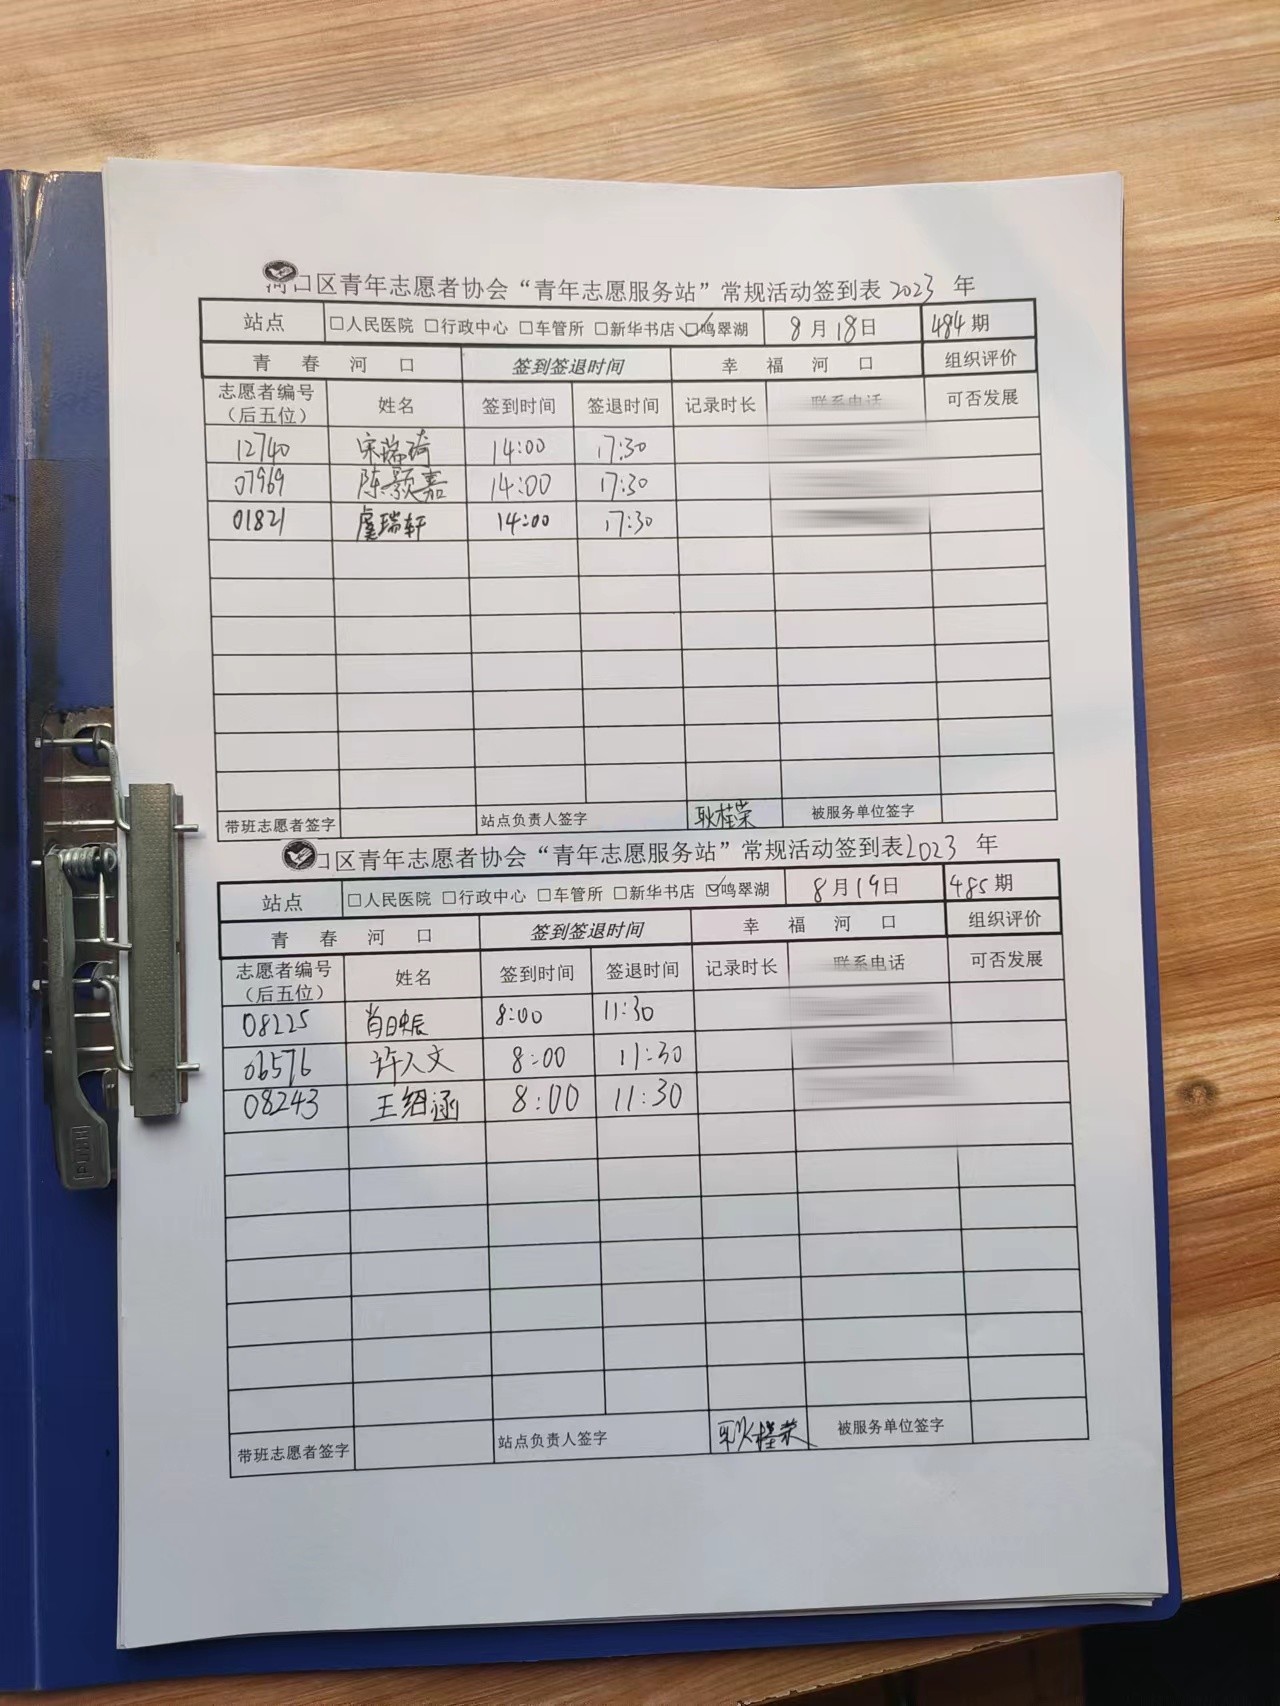 河口区青年志愿者协会“青年志愿服务站”常规活动签到表 2023 年
站点 □人民医院 □行政中心 □车管所 □新华书店 ☑鸣翠湖 8月18日 484期
青春河口 签到签退时间 幸福河口 组织评价
志愿者编号（后五位） 姓名 签到时间 签退时间 记录时长 联系电话 可否发展
12740 宋瑞琦 14:00 17:30
07969 陈颢嘉 14:00 17:30
01821 虞瑞轩 14:00 17:30
带班志愿者签字 站点负责人签字 耿桂荣 被服务单位签字
口区青年志愿者协会“青年志愿服务站”常规活动签到表 2023 年
站点 □人民医院 □行政中心 □车管所 □新华书店 ☑鸣翠湖 8月19日 485期
青春河口 签到签退时间 幸福河口 组织评价
志愿者编号（后五位） 姓名 签到时间 签退时间 记录时长 联系电话 可否发展
08225 肖映辰 8:00 11:30
06576 许人文 8:00 11:30
08243 王绍涵 8:00 11:30
带班志愿者签字 站点负责人签字 耿桂荣 被服务单位签字